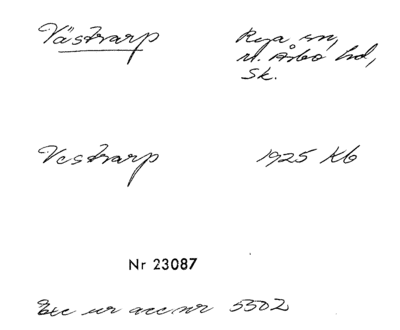 Västrarp
Rya sn,
N. Åsbo hd,
Sk.
Vestrarp
1925 Kb
Nr 23087
Exc ur acc nr 5502